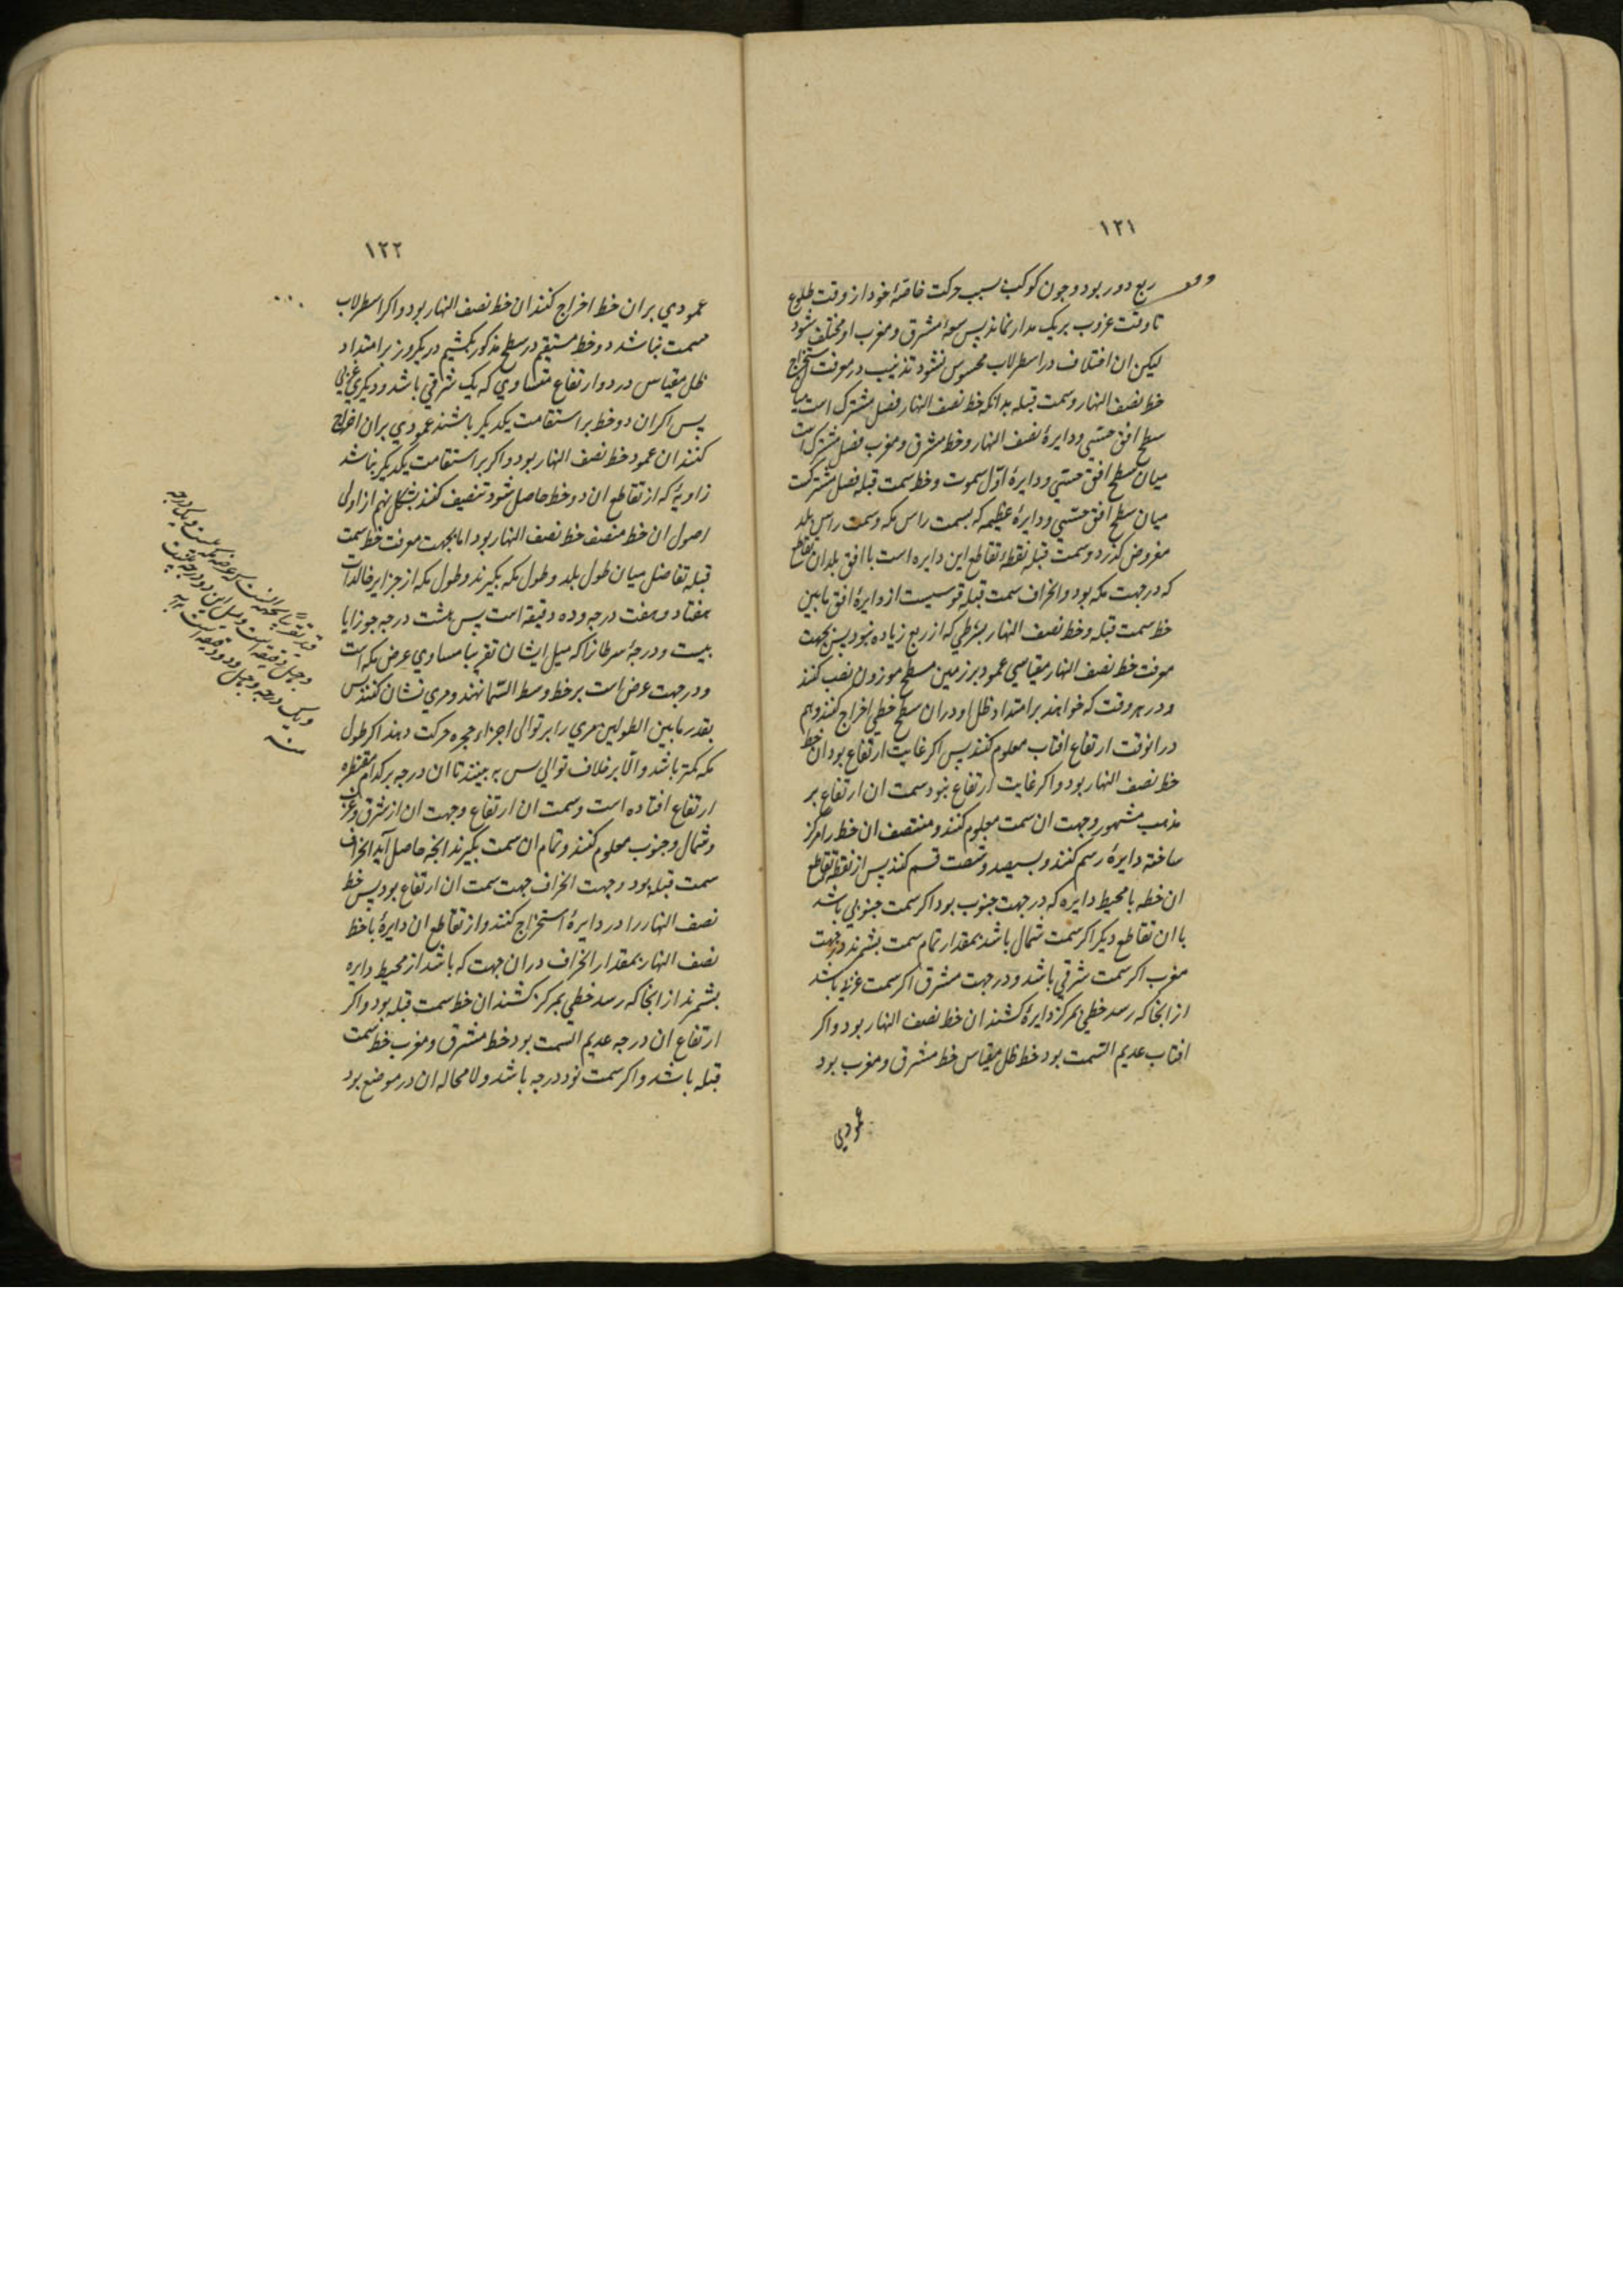 ١٢١
ربع دور بود و چون کوکب بسبب حرکت خاصهٔ خود از وقت طلوع
تا وقت غروب بر یک مدار نماند پس سعهٔ مشرق و مغرب او مختلف شود
لیکن ان اختلاف در اسطرلاب محسوس نشود تذنیب در معرفت استخراج
خط نصف النهار و سمت قبله بدانکه خط نصف النهار فصل مشترک است میان
سطح افق حسّی و دایرهٔ نصف النهار و خط مشرق و مغرب فصل مشترک است
میان سطح افق حسّی و دایرهٔ اوّل سموت و خط سمت قبله فصل مشترکست
میان سطح افق حسّی و دایرهٔ عظیمه که بسمت راس مکه و سمت راس بلد
مفروض کذرد و سمت قبله نقطهٔ تقاطع این دایره است با افق بلد ان تقاطع
که در جهت مکه بود و انحراف سمت قبله قوسیست از دایرهٔ افق مابین
خط سمت قبله و خط نصف النهار بشرطی که از ربع زیاده نبود پس بجهت
معرفت خط نصف النهار مقیاسی عمود بر زمین مسطح موزون نصب کنند
و در هر وقت که خواهند بر امتداد ظل او دران سطح خطی اخراج کنند و هم
درانوقت ارتفاع افتاب معلوم کنند پس اکر غایت ارتفاع بود ان خط
خط نصف النهار بود و اکر غایت ارتفاع نبود سمت ان ارتفاع بر
مذهب مشهور و جهت ان سمت معلوم کنند و منتصف ان خط را مرکز
ساخته دایرهٔ رسم کنند و بسیصد و شصت قسم کنند پس از نقطهٔ تقاطع
ان خط با محیط دایره که در جهت جنوب بود اکر سمت جنوبی باشد
با ان تقاطع دیکر اکر سمت شمال باشد بمقدار تمام سمت بشمرند در جهت
مغرب اکر سمت شرقی باشد و در جهت مشرق اکر سمت غربی باشد
از انجا که رسد خطی بمرکز دایرهٔ کشند ان خط نصف النهار بود و اکر
افتاب عدیم السّمت بود خط ظل مقیاس خط مشرق و مغرب بود
عمودی
١٢٢
عمودی بر ان خط اخراج کنند ان خط نصف النهار بود و اکر اسطرلاب
مسمت نباشد دو خط مستقیم در سطح مذکور بکشیم در یکروز بر امتداد
ظل مقیاس در دو ارتفاع متساوی که یک شرقی باشد و دیکری غربی
پس اکر ان دو خط بر استقامت یکدیکر باشند عمودی بران اخراج
کنند ان عمود خط نصف النهار بود و اکر بر استقامت یکدیکر نباشد
زاویهٔ که از تقاطع ان دو خط حاصل شود تنصیف کنند بشکل نهم از اولی
اصول ان خط منصف خط نصف النهار بود اما بجهت معرفت خط سمت
قبله تفاضل میان طول بلد و طول مکه بکیرند و طول مکه از جزایر خالدات
هفتاد و هفت درجه و ده دقیقه است پس هشت درجه جوزا یا
بیست و درجهٔ سرطانرا که میل ایشان تقریبا مساوی عرض مکه است
و در جهت عرض است بر خط وسط السّما نهند و مری نشان کنند پس
بقدر ما بین الطولین مری را بر توالی اجزاء حجره حرکت دهند اکر طول
مکه کمتر باشد و الّا بر خلاف توالی پس به بینند تا ان درجه بر کدام مقنطره
ارتفاع افتاده است و سمت ان ارتفاع و جهت ان از شرق و غرب
و شمال و جنوب معلوم کنند و تمام ان سمت بکیرند انچه حاصل آید انحراف
سمت قبله بود و جهت انحراف جهت سمت ان ارتفاع بود پس خط
نصف النهار را در دایرهٔ استخراج کنند و از تقاطع ان دایرهٔ با خط
نصف النهار بمقدار انحراف دران جهت که باشد از محیط دایره
بشمرند از انجا که رسد خطی بمرکز کشند ان خط سمت قبله بود و اکر
ارتفاع ان درجه عدیم السمت بود خط مشرق و مغرب خط سمت
قبله باشد و اکر سمت نود درجه باشد و لا محاله ان در موضع بود
قید تقریبا بجهة انست که عرض مکه بیست و یک درجه
و چهل دقیقه است و میل این دو درجه بیست
و یک درجه و چهل و دو دقیقه است
منه